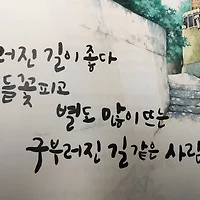 러진 길이 좋다
들꽃피고
별도 많이 뜨는
구부러진 길 같은 사람